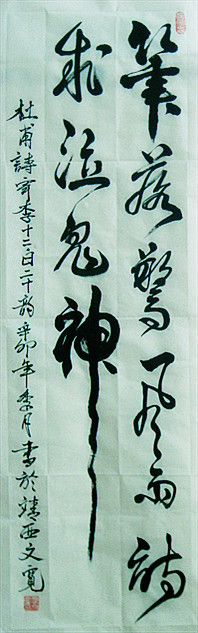 筆落驚風雨詩
成泣鬼神
杜甫詩寄李十二白二十韵辛卯年季月書於靖西文寬